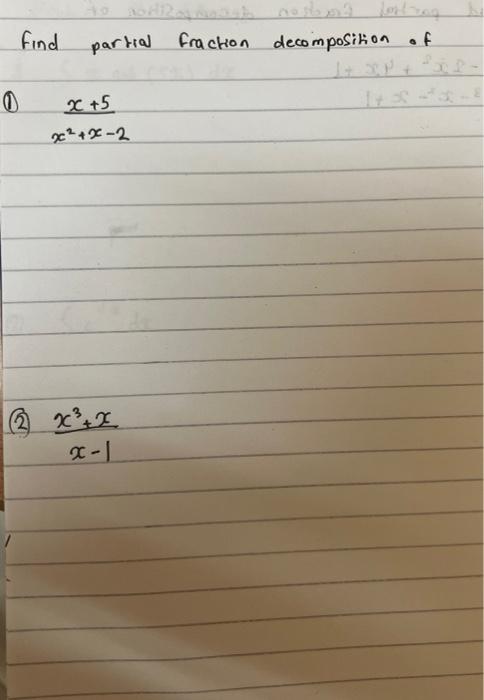 find partial fraction decomposition of
① x+5
x²+x-2
② x³+x
x-1